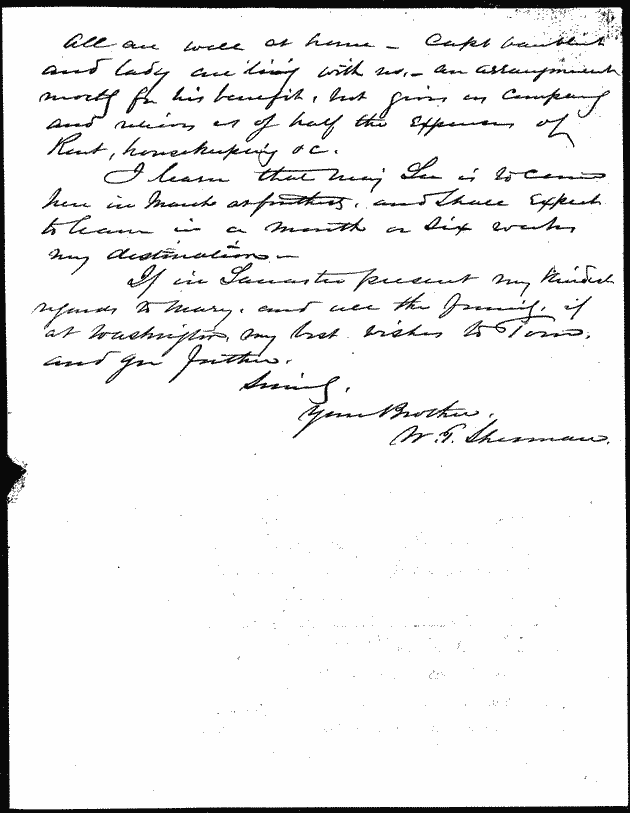 All are well at home – Capt Van Vliet
and lady are living with us, – an arrangement
mostly for his benefit, but gives us company
and relieves us of half the expenses of
Rent, housekeeping &c.
I learn that Maj Lee is to come
here in March and shall expect
to learn in a month or six weeks
my destination –
If in Lancaster present my kindest
regards to Mary, and all the family, if
at Washington, my best wishes to Tom,
and yr father.
Your Brother,
W. T. Sherman.